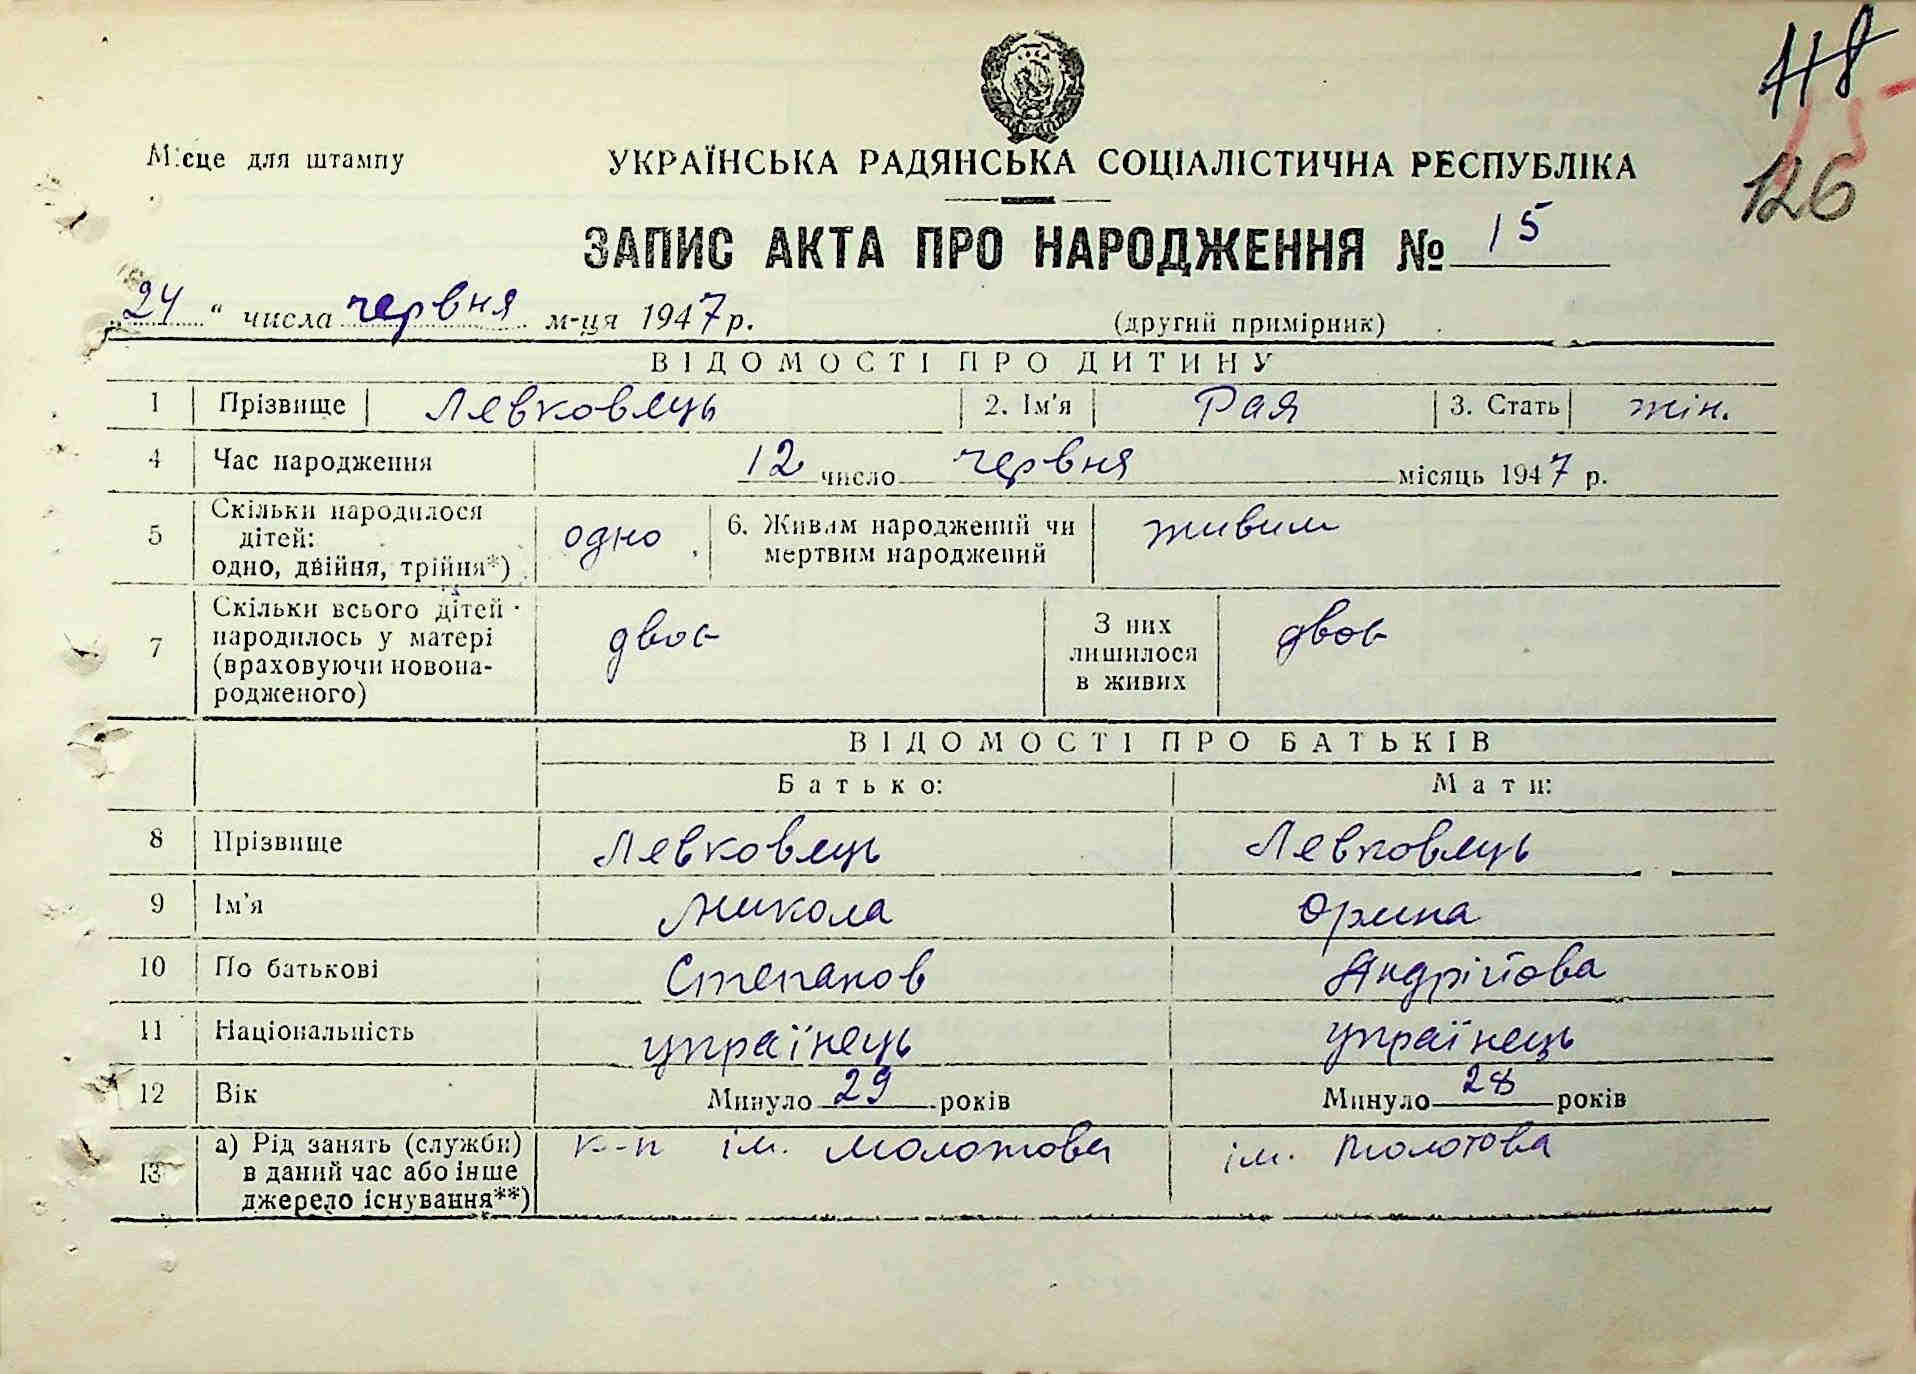 118
126
Місце для штампу
УКРАЇНСЬКА РАДЯНСЬКА СОЦІАЛІСТИЧНА РЕСПУБЛІКА
ЗАПИС АКТА ПРО НАРОДЖЕННЯ № 15
„24“ числа червня м-ця 1947 р. (другий примірник)
ВІДОМОСТІ ПРО ДИТИНУ
1 Прізвище Левковець 2. Ім'я Рая 3. Стать жін.
4 Час народження 12 число червня місяць 1947 р.
5 Скільки народилося дітей: одно, двійня, трійня*) одно 6. Живим народжений чи мертвим народжений живим
7 Скільки всього дітей народилось у матері (враховуючи новонародженого) двоє З них лишилося в живих двоє
ВІДОМОСТІ ПРО БАТЬКІВ
Батько: Мати:
8 Прізвище Левковець Левковець
9 Ім'я Микола Орина
10 По батькові Степанов Андрійова
11 Національність українець українець
12 Вік Минуло 29 років Минуло 28 років
13 а) Рід занять (служби) в даний час або інше джерело існування**) к-п ім. Молотова ім. Молотова